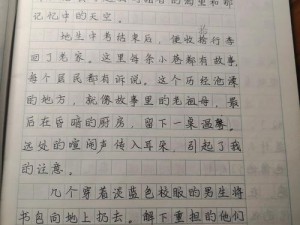 记忆中的天空。
她生中考结束后，便收拾行李
回了老家。这里每条小巷都有故事，
每个居民都有诉说。这个历经沧桑
的地方，就像故事里的老祖母，最
后在昏暗的厨房，留下一桌温馨。
远处的喧闹声传入耳朵，引起了我
的注意。
几个穿着淡蓝色校服的男生将
书包向地上扔去。解下重担的他们